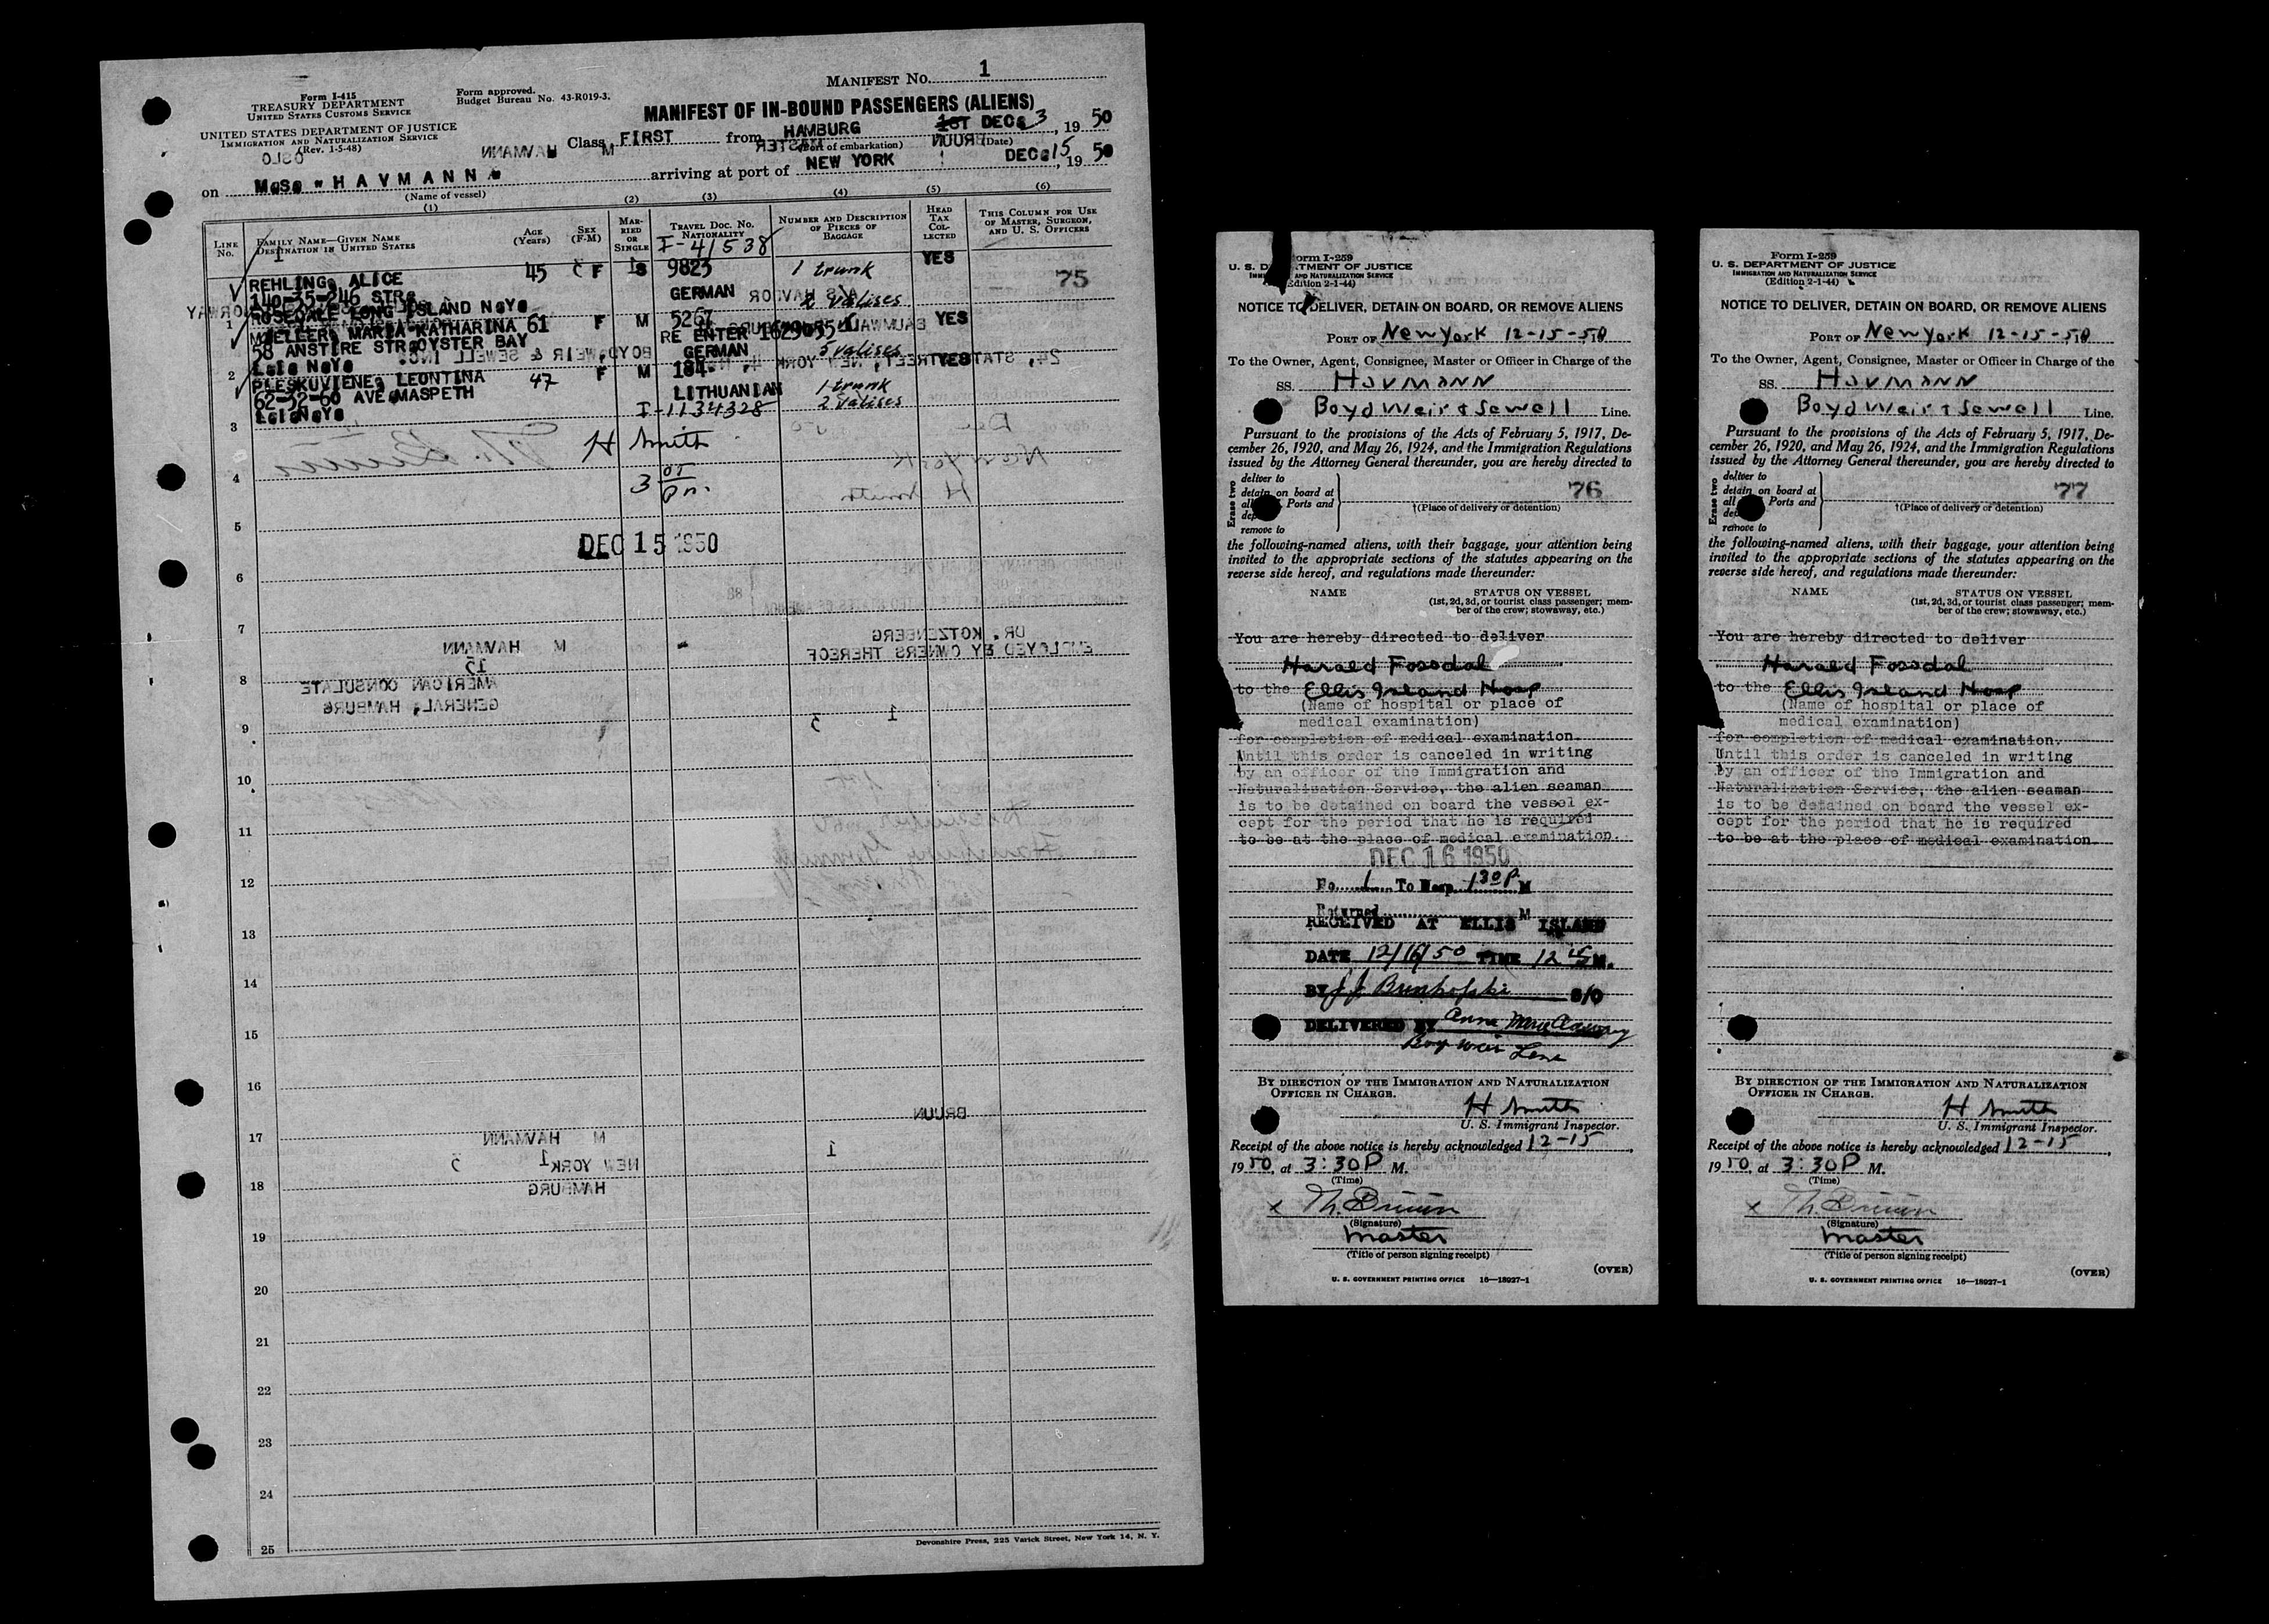 MANIFEST No. 1
Form I-415
TREASURY DEPARTMENT
UNITED STATES CUSTOMS SERVICE
Form approved.
Budget Bureau No. 43-R019-3.
MANIFEST OF IN-BOUND PASSENGERS (ALIENS)
UNITED STATES DEPARTMENT OF JUSTICE
IMMIGRATION AND NATURALIZATION SERVICE
(Rev. 1-5-48)
Class FIRST from HAMBURG 1ST DEC. 3, 1950
(Port of embarkation) (Date)
on M.S. "HAVMANN" arriving at port of NEW YORK DEC. 15, 1950
(Name of vessel)
(1) (2) (3) (4) (5) (6)
LINE No.
FAMILY NAME—GIVEN NAME
DESTINATION IN UNITED STATES
AGE (Years)
SEX (F-M)
MARRIED OR SINGLE
TRAVEL DOC. NO.
NATIONALITY
NUMBER AND DESCRIPTION OF PIECES OF BAGGAGE
HEAD TAX COLLECTED
THIS COLUMN FOR USE OF MASTER, SURGEON, AND U. S. OFFICERS
I-41538
REHLING, ALICE 45 F S 9823 1 trunk YES 75
140-35-246 STR. GERMAN 2 valises
ROSEDALE LONG ISLAND N.Y.
1
MUELLER, MARIA KATHARINA 61 F M 5267 YES
58 ANSTIRE STR. OYSTER BAY RE ENTER
L.I. N.Y. GERMAN 5 valises
2
PLESKUVIENE, LEONTINA 47 F M 184 YES
62-52-60 AVE. MASPETH LITHUANIAN 1 trunk
L.I. N.Y. I-1134328 2 valises
3
H Smith
4
DEC 15 1950
5
6
7
8
9
10
11
12
13
14
15
16
17
18
19
20
21
22
23
24
25
Devonshire Press, 225 Varick Street, New York 14, N. Y.
Form I-259
U. S. DEPARTMENT OF JUSTICE
IMMIGRATION AND NATURALIZATION SERVICE
(Edition 2-1-44)
NOTICE TO DELIVER, DETAIN ON BOARD, OR REMOVE ALIENS
PORT OF New York 12-15-50
To the Owner, Agent, Consignee, Master or Officer in Charge of the
SS. Havmann
Boyd Weir & Sewell Line.
Pursuant to the provisions of the Acts of February 5, 1917, December 26, 1920, and May 26, 1924, and the Immigration Regulations issued by the Attorney General thereunder, you are hereby directed to
Erase two
deliver to
detain on board at
Ports and
remove to
76
†(Place of delivery or detention)
the following-named aliens, with their baggage, your attention being
invited to the appropriate sections of the statutes appearing on the
reverse side hereof, and regulations made thereunder:
NAME STATUS ON VESSEL
(1st, 2d, 3d, or tourist class passenger; member of the crew; stowaway, etc.)
You are hereby directed to deliver
Harald Fossdal
to the Ellis Island Hosp
(Name of hospital or place of
medical examination)
for completion of medical examination.
Until this order is canceled in writing
by an officer of the Immigration and
Naturalization Service, the alien seaman
is to be detained on board the vessel ex-
cept for the period that he is required
to be at the place of medical examination.
DEC 16 1950
To Hosp. 1 30 P M
Returned M
RECEIVED AT ELLIS ISLAND
DATE 12/16/50 TIME 12 45 M.
BY
DELIVERED BY
BY DIRECTION OF THE IMMIGRATION AND NATURALIZATION
OFFICER IN CHARGE.
H Smith
U. S. Immigrant Inspector.
Receipt of the above notice is hereby acknowledged 12-15,
1950, at 3:30 P M.
(Time)
x Th. Bruun
(Signature)
Master
(Title of person signing receipt)
(OVER)
U. S. GOVERNMENT PRINTING OFFICE 16—18927-1
Form I-259
U. S. DEPARTMENT OF JUSTICE
IMMIGRATION AND NATURALIZATION SERVICE
(Edition 2-1-44)
NOTICE TO DELIVER, DETAIN ON BOARD, OR REMOVE ALIENS
PORT OF New York 12-15-50
To the Owner, Agent, Consignee, Master or Officer in Charge of the
SS. Havmann
Boyd Weir & Sewell Line.
Pursuant to the provisions of the Acts of February 5, 1917, December 26, 1920, and May 26, 1924, and the Immigration Regulations issued by the Attorney General thereunder, you are hereby directed to
Erase two
deliver to
detain on board at
Ports and
remove to
77
†(Place of delivery or detention)
the following-named aliens, with their baggage, your attention being
invited to the appropriate sections of the statutes appearing on the
reverse side hereof, and regulations made thereunder:
NAME STATUS ON VESSEL
(1st, 2d, 3d, or tourist class passenger; member of the crew; stowaway, etc.)
You are hereby directed to deliver
Harald Fossdal
to the Ellis Island Hosp
(Name of hospital or place of
medical examination)
for completion of medical examination.
Until this order is canceled in writing
by an officer of the Immigration and
Naturalization Service, the alien seaman
is to be detained on board the vessel ex-
cept for the period that he is required
to be at the place of medical examination.
BY DIRECTION OF THE IMMIGRATION AND NATURALIZATION
OFFICER IN CHARGE.
H Smith
U. S. Immigrant Inspector.
Receipt of the above notice is hereby acknowledged 12-15,
1950, at 3:30 P M.
(Time)
x Th. Bruun
(Signature)
Master
(Title of person signing receipt)
(OVER)
U. S. GOVERNMENT PRINTING OFFICE 16—18927-1